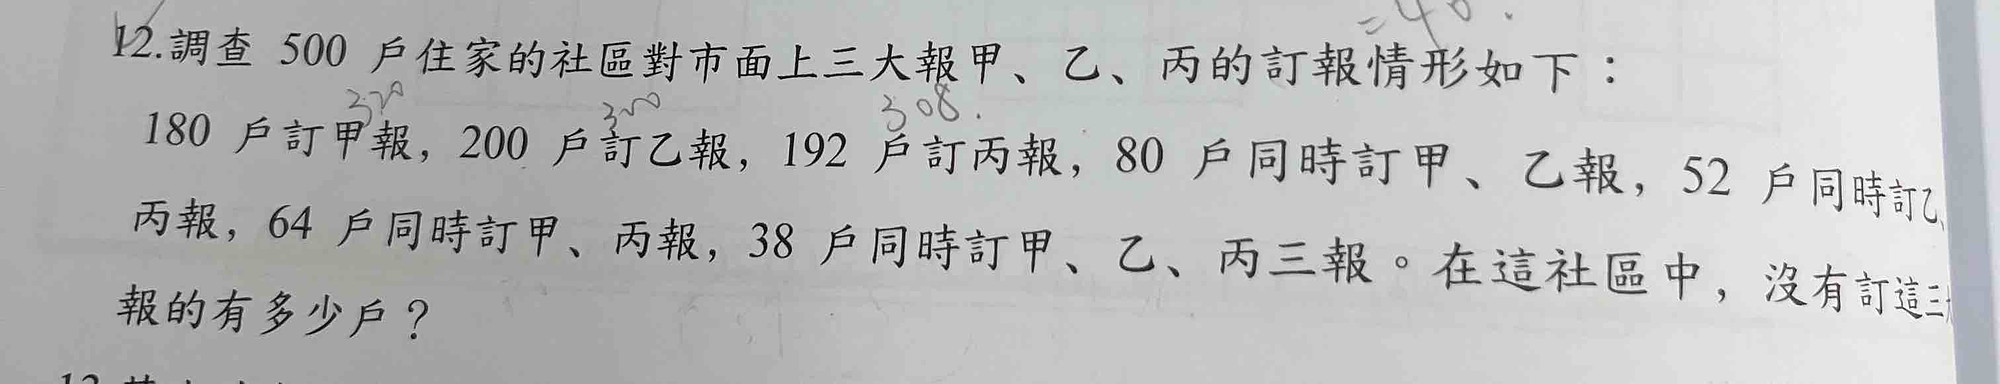 12.調查 500 戶住家的社區對市面上三大報甲、乙、丙的訂報情形如下：
320 300 308.
180 戶訂甲報，200 戶訂乙報，192 戶訂丙報，80 戶同時訂甲、乙報，52 戶同時訂乙、
丙報，64 戶同時訂甲、丙報，38 戶同時訂甲、乙、丙三報。在這社區中，沒有訂這三
報的有多少戶？